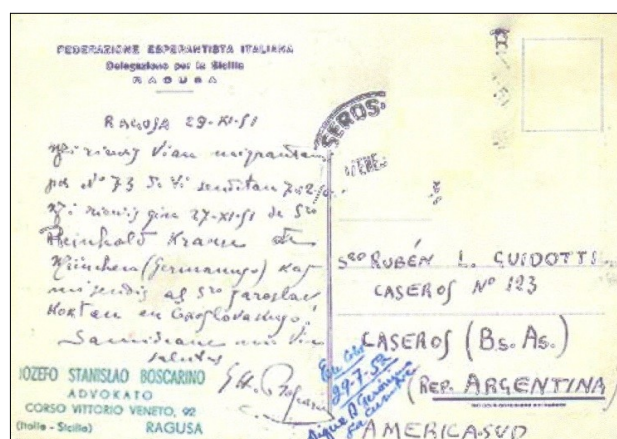 FEDERAZIONE ESPERANTISTA ITALIANA
Delegazione per la Sicilia
RAGUSA
RAGUSA 29-XI-51
Mi ricevis Vian migrantan
per N° 73 de Vi senditan
Mi ricevis ĝin 27-XI-51 de Sro
Reinhold Krause de
München (Germanujo) kaj
mi sendis al Sro Jaroslav
en Ĉeoslovakujo!
Samideane mi Vin
salutas
JOZEFO STANISLAO BOSCARINO
ADVOKATO
CORSO VITTORIO VENETO, 92
(Italio - Sicilio) RAGUSA
SEROS
VENE
Sro RUBÉN L. GUIDOTTI
CASEROS N° 123
CASEROS (Bs. As.)
(REP. ARGENTINA)
AMERICA-SUD
29-7-52